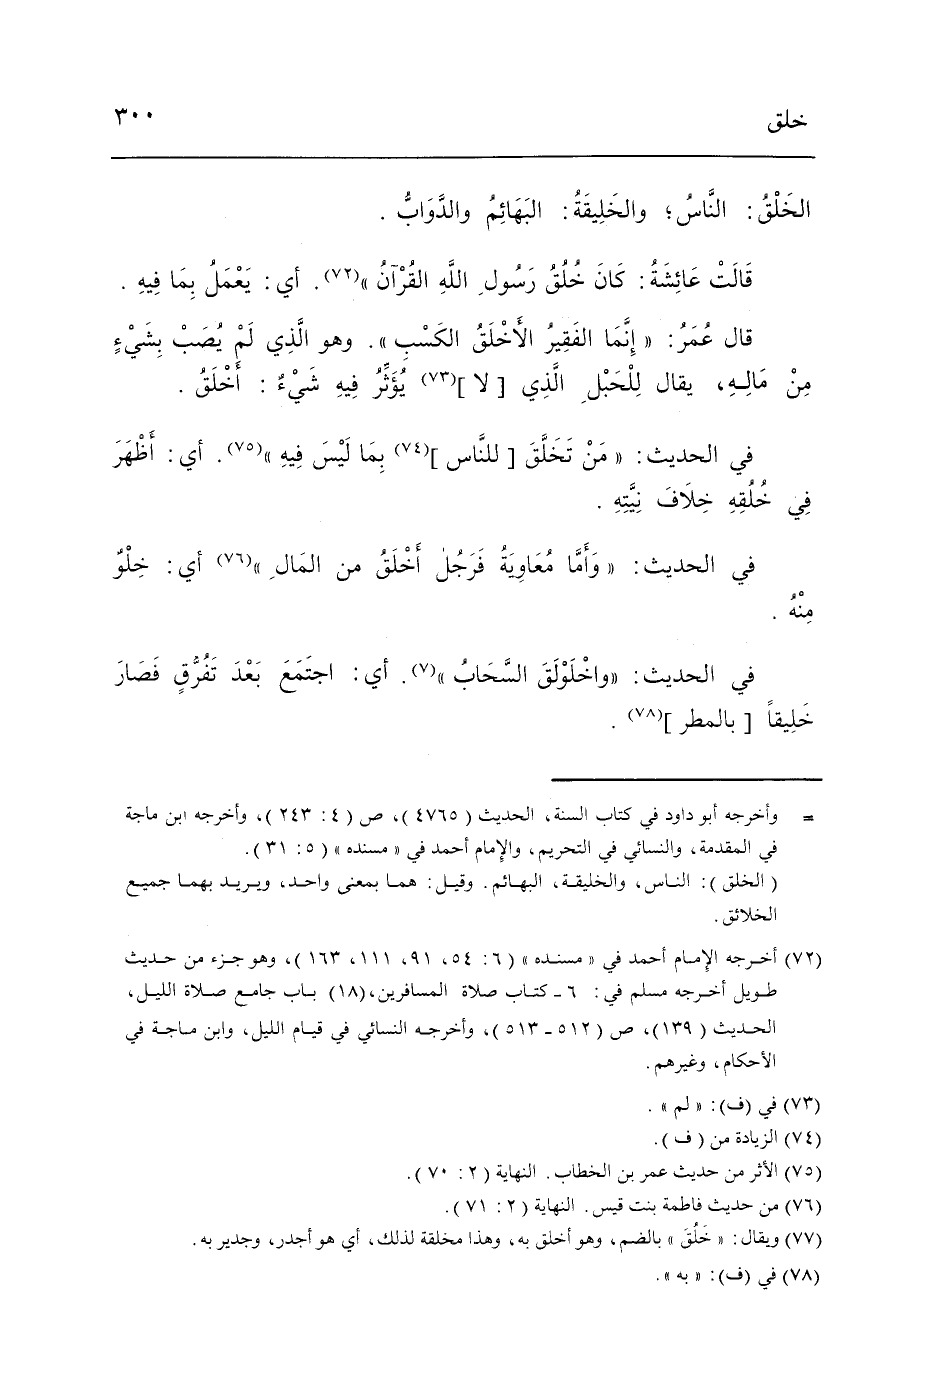 خلق ٣٠٠
الخَلْقُ : النَّاسُ ؛ والخَلِيقَةُ : البَهَائِمُ والدَّوَابُّ .
قَالَتْ عَائِشَةُ : كَانَ خُلُقُ رَسُولِ اللَّهِ القُرْآنُ »(٧٢). أي : يَعْمَلُ بِمَا فِيهِ .
قال عُمَرُ : « إِنَّمَا الفَقِيرُ الأَخْلَقُ الكَسْبِ ». وهو الَّذِي لَمْ يُصَبْ بِشَيْءٍ
مِنْ مَالِهِ، يقال لِلْحَبْلِ الَّذِي [ لا ](٧٣) يُؤَثِّرُ فِيهِ شَيْءٌ : أَخْلَقُ .
في الحديث : « مَنْ تَخَلَّقَ [ للنَّاس ](٧٤) بِمَا لَيْسَ فِيهِ »(٧٥). أي : أَظْهَرَ
فِي خُلُقِهِ خِلَافَ نِيَّتِهِ .
في الحديث : « وَأَمَّا مُعَاوِيَةُ فَرَجُلٌ أَخْلَقُ من المَالِ »(٧٦) أي : خِلْوٌ
مِنْهُ .
في الحديث : «واخْلَوْلَقَ السَّحَابُ »(٧). أي : اجتَمَعَ بَعْدَ تَفُرُّقٍ فَصَارَ
خَلِيقاً [ بالمطر ](٧٨) .
= وأخرجه أبو داود في كتاب السنة، الحديث ( ٤٧٦٥ )، ص ( ٤ : ٢٤٣ )، وأخرجه ابن ماجة
في المقدمة، والنسائي في التحريم، والإمام أحمد في « مسنده » ( ٥ : ٣١ ).
( الخلق ): الناس، والخليقة، البهائم. وقيل : هما بمعنى واحد، ويريد بهما جميع
الخلائق .
(٧٢) أخرجه الإمام أحمد في « مسنده » ( ٦ : ٥٤، ٩١، ١١١، ١٦٣ )، وهو جزء من حديث
طويل أخرجه مسلم في : ٦ - كتاب صلاة المسافرين، (١٨) باب جامع صلاة الليل،
الحديث ( ١٣٩ )، ص ( ٥١٢ - ٥١٣ )، وأخرجه النسائي في قيام الليل، وابن ماجة في
الأحكام، وغيرهم .
(٧٣) في (ف): « لم » .
(٧٤) الزيادة من ( ف ).
(٧٥) الأثر من حديث عمر بن الخطاب. النهاية ( ٢ : ٧٠ ).
(٧٦) من حديث فاطمة بنت قيس. النهاية ( ٢ : ٧١ ).
(٧٧) ويقال : « خَلُقَ » بالضم، وهو أخلق به، وهذا مخلقة لذلك، أي هو أجدر، وجدير به .
(٧٨) في (ف): « به ».